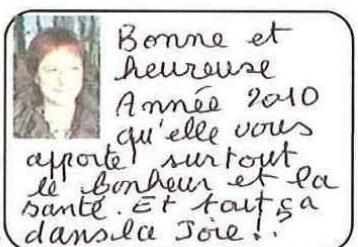 Bonne et
heureuse
Année 2010
qu'elle vous
apporte surtout
le bonheur et la
santé. Et tout ça
dans la Joie !.